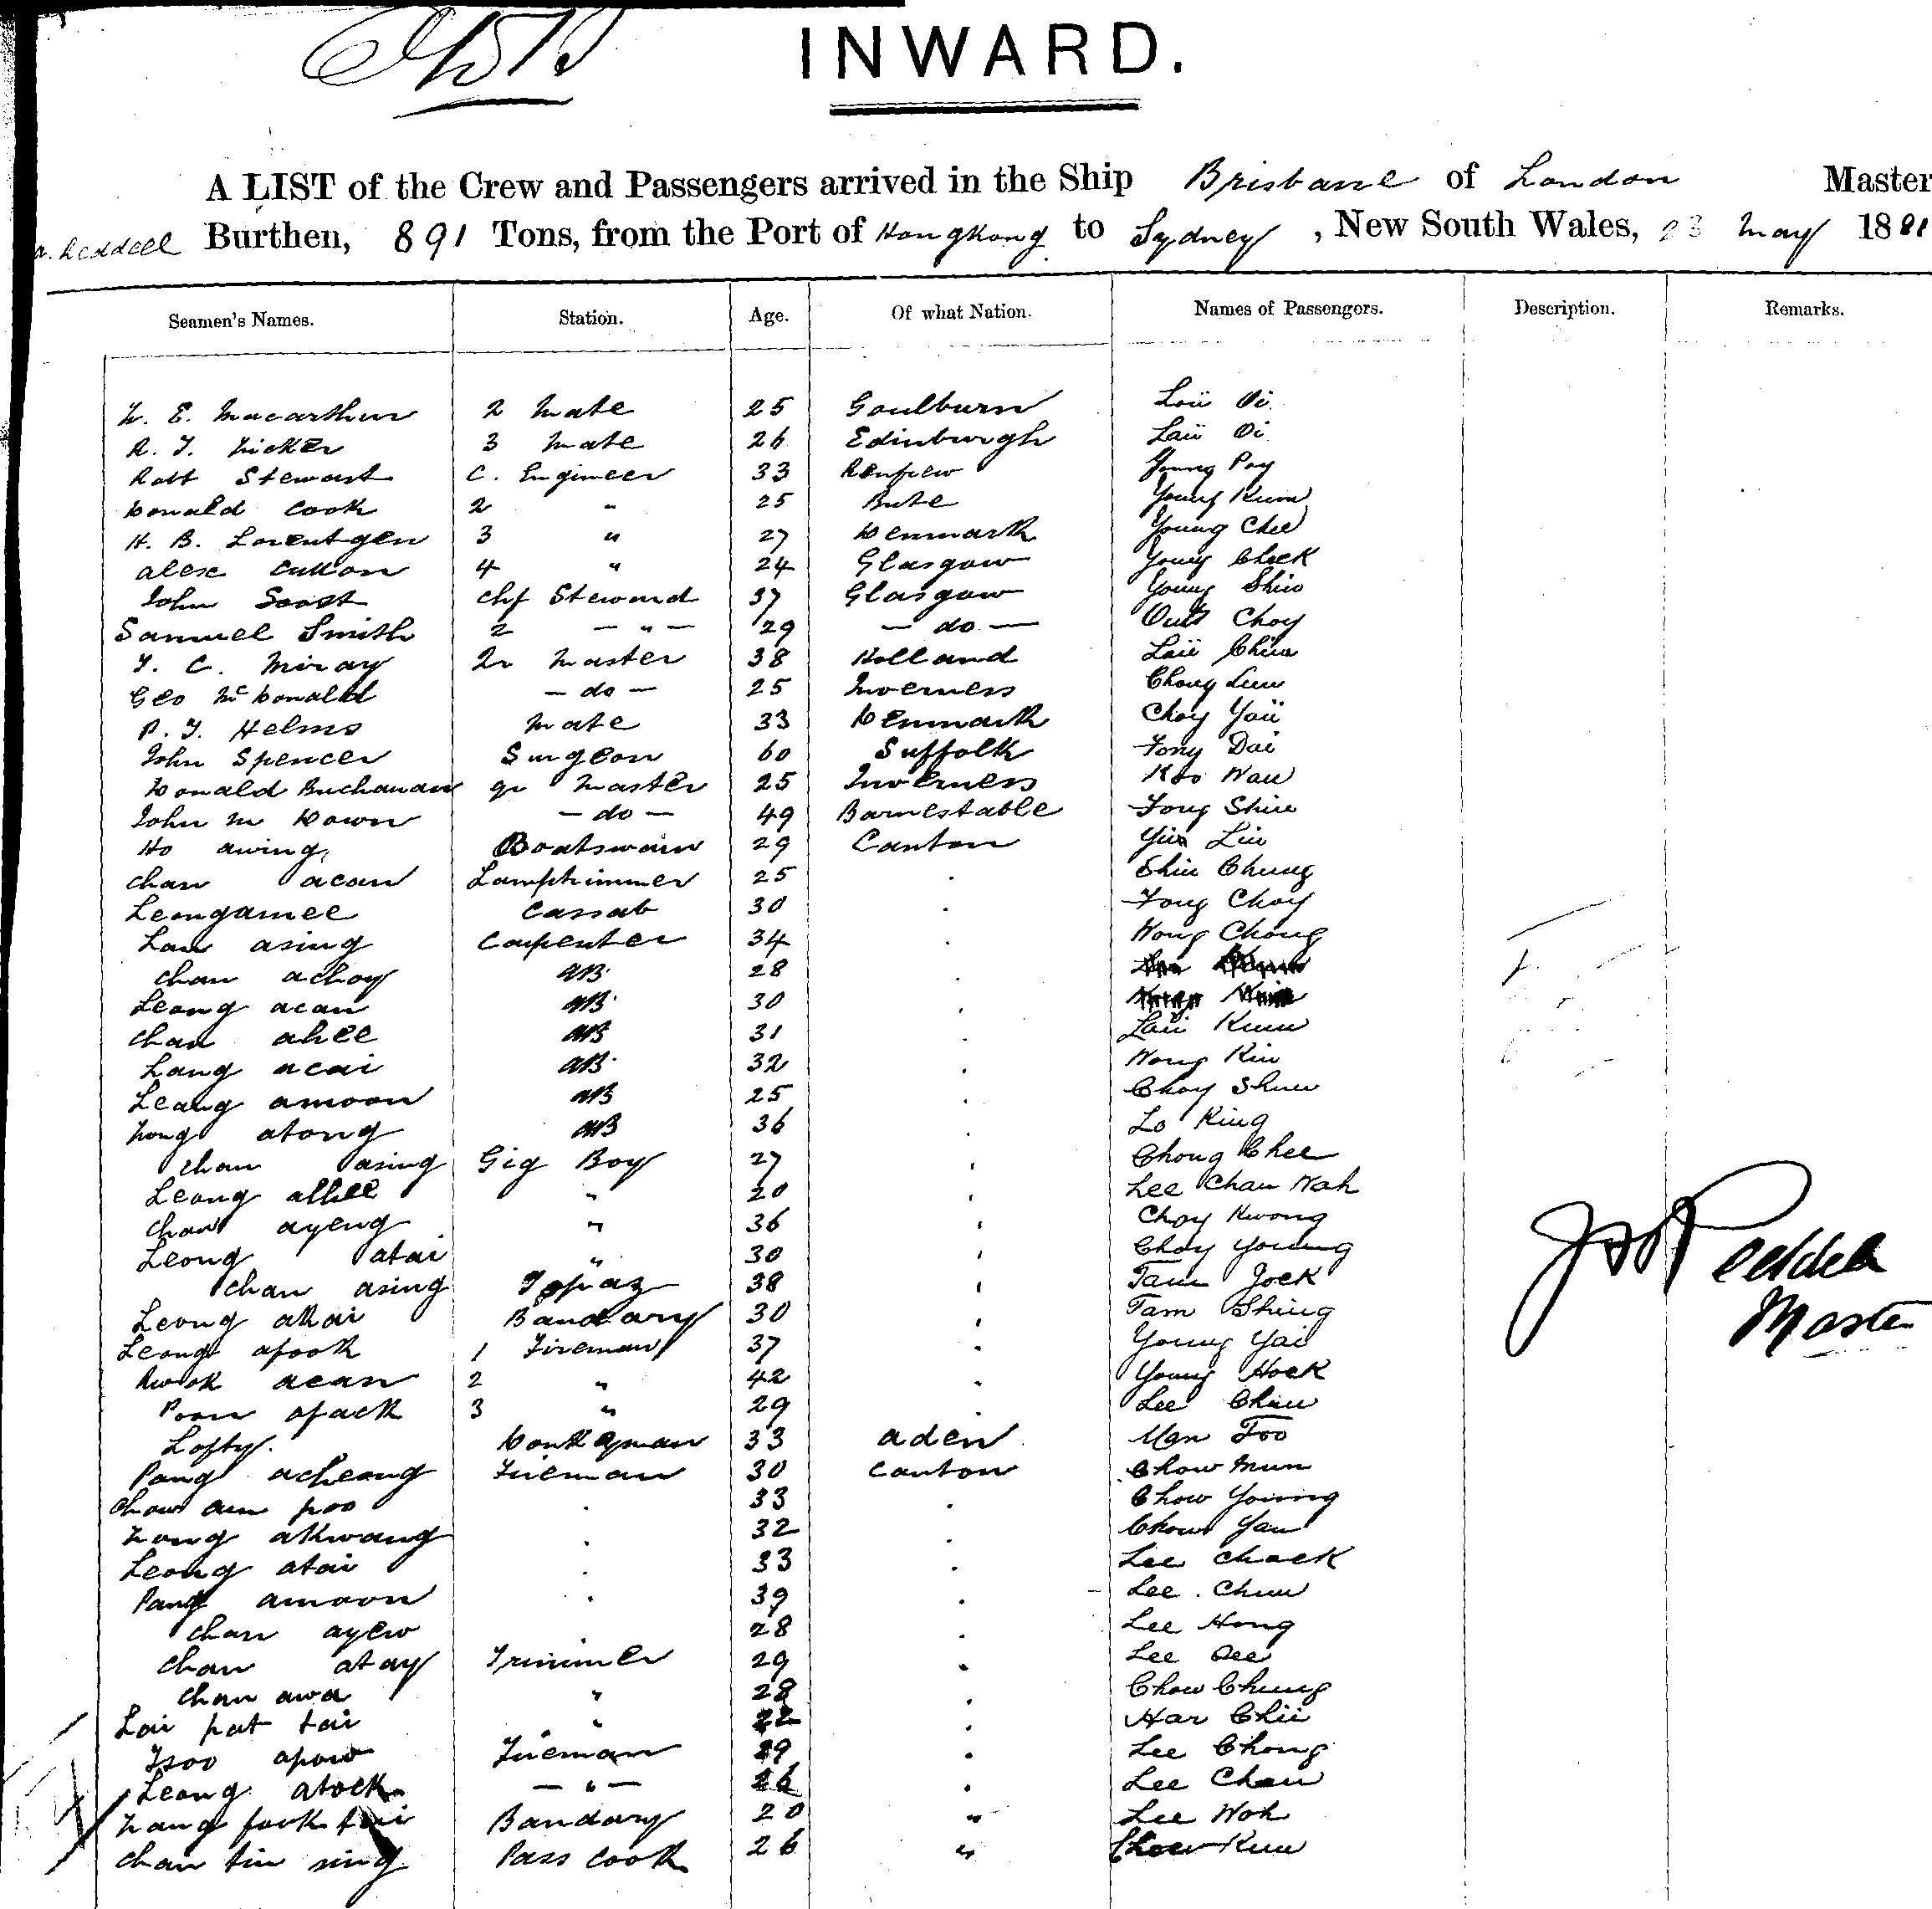 INWARD.
A LIST of the Crew and Passengers arrived in the Ship Brisbane of London Master
Burthen, 891 Tons, from the Port of HongKong to Sydney, New South Wales, 23 May 1881
Seamen's Names. Station. Age. Of what Nation. Names of Passengers. Description. Remarks.
E. Macarthur 2 Mate 25 Goulburn Oi
3 Mate 26 Edinburgh Oi
Robt Stewart C. Engineer 33 Renfrew Young Poy
Donald Cook 2 " 25 Bute Young Kum
H. B. Lorentgen 3 " 27 Denmark Young Chee
Alex 4 " 24 Glasgow Young Cheek
John Chf Steward 37 Glasgow Young Shin
Samuel Smith 2 — " — 29 — do — Choy
Miray Qr Master 38 Holland
Geo McDonald — do — 25 Inverness Chong
Helms Mate 33 Denmark Choy
John Spencer Surgeon 60 Suffolk Fong Dai
Donald Buchanan qr Master 25 Inverness Koo Wau
John M Down — do — 49 Barnestable Fong Shiu
Ho awing Boatswain 29 Canton Liu
Chan acan Lamptrimmer 25 . Shiu Chung
Leongamee Cassab 30 . Fong Choy
Lau asing Carpenter 34 . Wong Chong
Chan achoy AB 28 .
Leong acan AB 30 .
Chan ahee AB 31 . Kum
Lang acai AB 32 . Wong Kiu
Leang amoon AB 25 . Choy Shuu
atong AB 36 . Lo King
Chan asing Gig Boy 27 . Chong Chee
Leong ahee " 20 . Lee Chau Wah
Chan ayeng " 36 . Choy Kwong
Leong atai " 30 . Choy Young
Chan asing Topaz 38 . Tam Jock
Leong akai Bandary 30 . Tam Shing
Leong apook 1 Fireman 37 . Young Yai
Kwok acan 2 " 42 . Young Hock
Poon apack 3 " 29 . Lee Chau
Lofty. Donkeyman 33 Aden Man Foo
Pang acheong Fireman 30 Canton Chow Mun
Chow poo . 33 . Chow Young
akwang . 32 . Chow Yau
Leong atai . 33 . Lee Chack
Pang amoon . 39 . Lee Chuu
Chan ayew . 28 . Lee Hong
Chan atay Trimmer 29 . Lee
Chan awa " 28 . Chow Chung
Lai pat tai " 22 . Har Chii
Tsoo apow Fireman 29 . Lee Chong
Leong atock — " — 26 . Lee Chau
fook Bandary 20 " Lee Wok
Chan tin sing Pass Cook 26 " Chow Kuu
Master